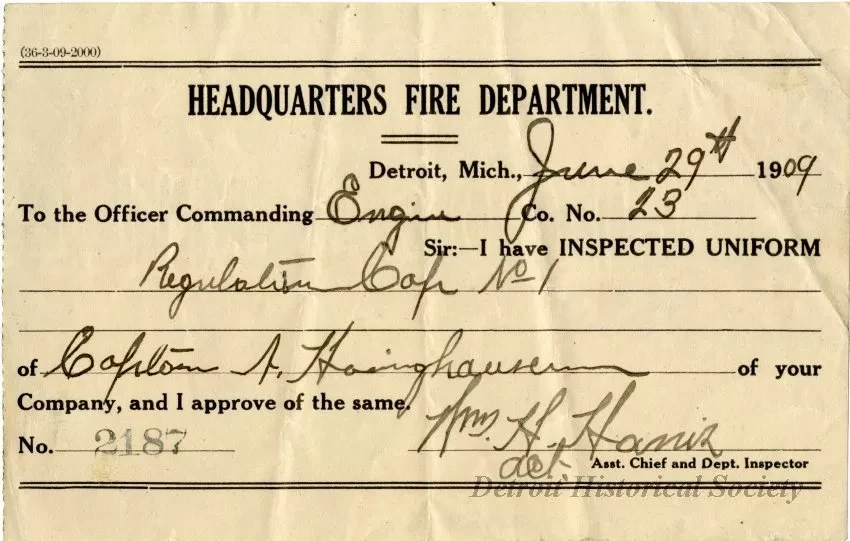 (36-3-09-2000)
HEADQUARTERS FIRE DEPARTMENT.
Detroit, Mich., June 29th 1909
To the Officer Commanding Engine Co. No. 23
Sir:—I have INSPECTED UNIFORM
Regulation Cap No 1
of Captain A. Hainghausen of your
Company, and I approve of the same.
Wm. H. Harris
No. 2187
act.
Asst. Chief and Dept. Inspector
Detroit Historical Society